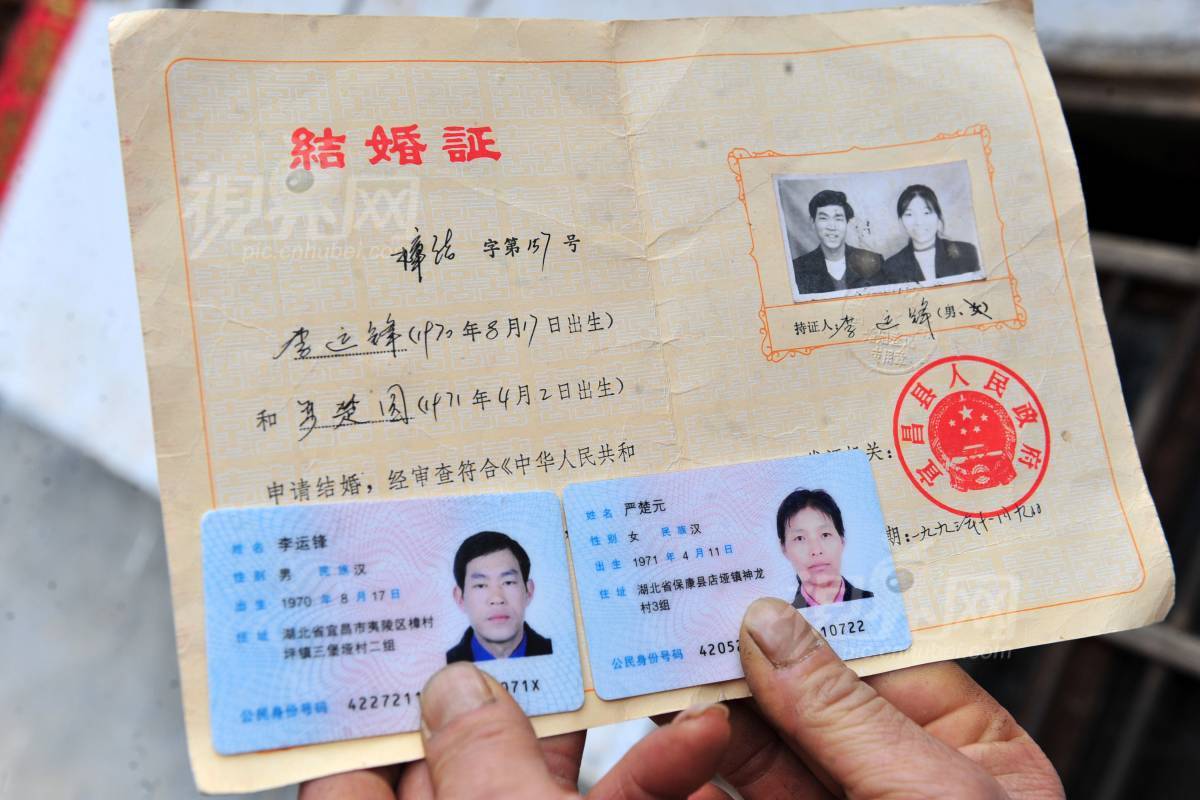 結婚証
視界网
pic.cnhubei.com
樟结 字第157号
李运锋(1970年8月17日出生)
和 严楚园(1971年4月2日出生)
申请结婚，经审查符合《中华人民共和
持证人:李运锋(男、女)
宜昌县人民政府
发证机关:
期:一九九三年十一月九日
姓名 李运锋
性别 男 民族 汉
出生 1970 年 8 月 17 日
住址 湖北省宜昌市夷陵区樟村
坪镇三堡垭村二组
公民身份号码 4227211 071X
姓名 严楚元
性别 女 民族 汉
出生 1971 年 4 月 11 日
住址 湖北省保康县店垭镇神龙
村3组
公民身份号码 4205 10722